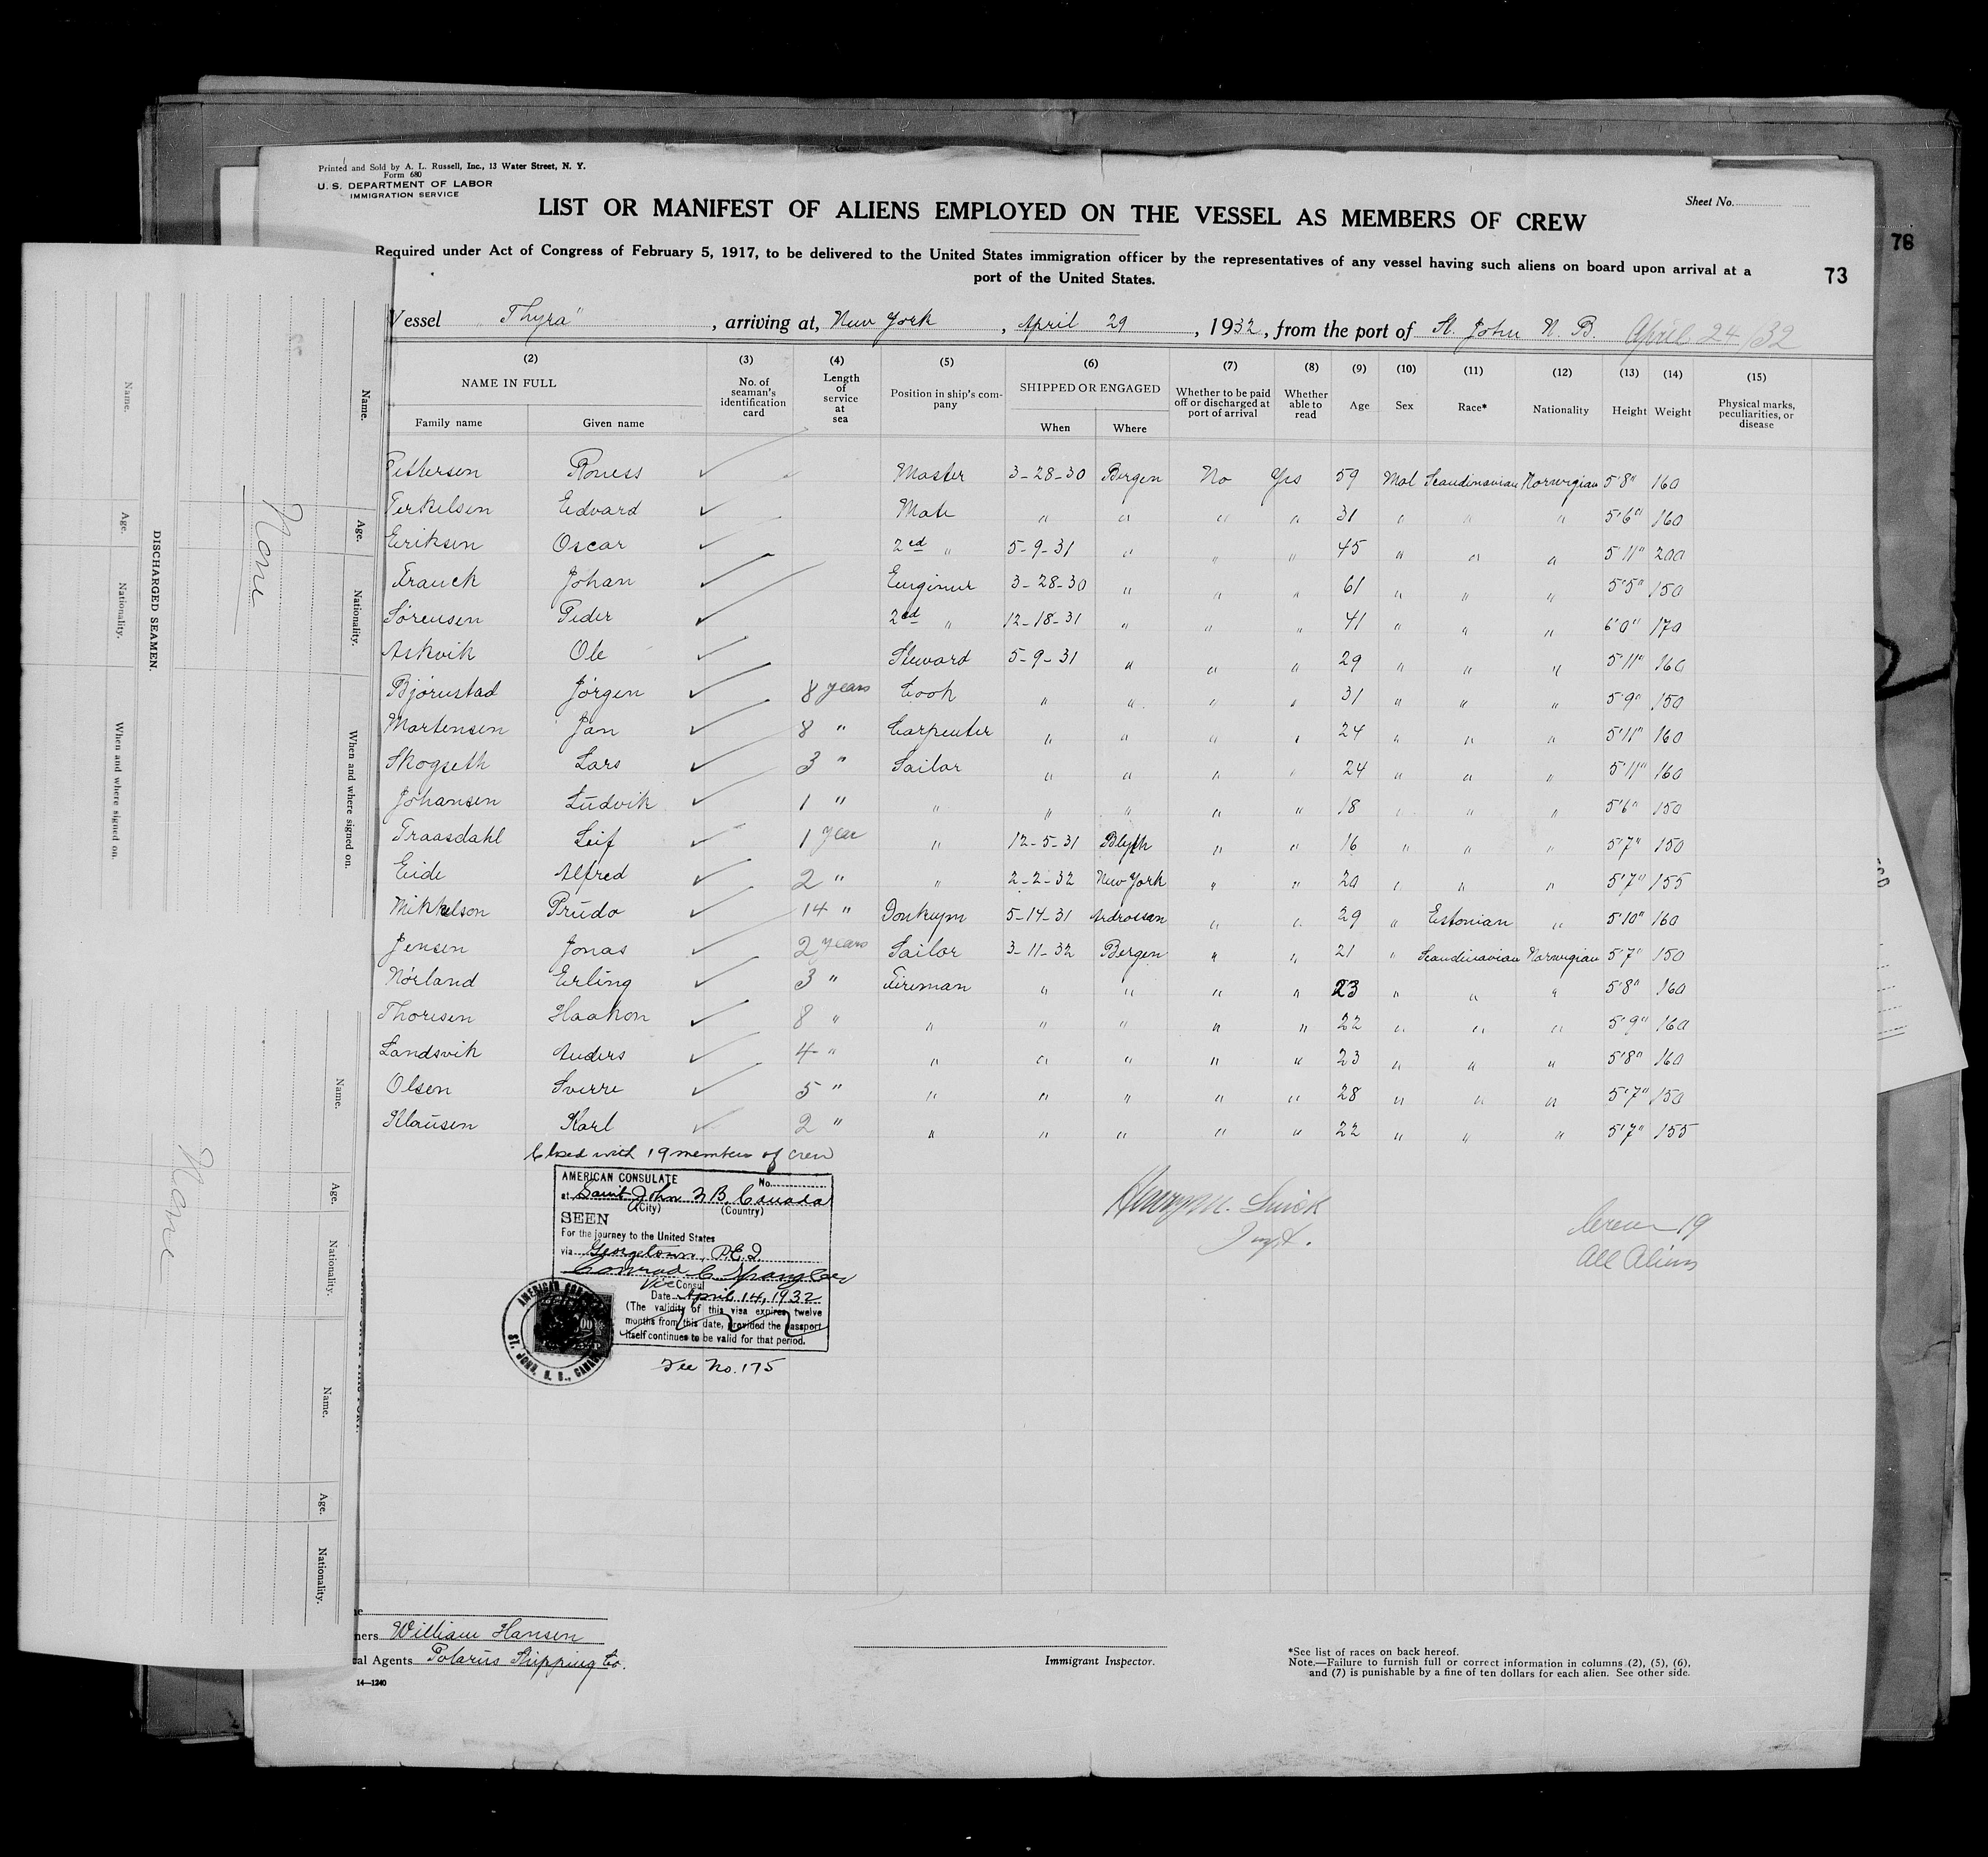 Printed and Sold by A. L. Russell, Inc., 13 Water Street, N. Y.
Form 680
U. S. DEPARTMENT OF LABOR
IMMIGRATION SERVICE
Sheet No.
LIST OR MANIFEST OF ALIENS EMPLOYED ON THE VESSEL AS MEMBERS OF CREW
Required under Act of Congress of February 5, 1917, to be delivered to the United States immigration officer by the representatives of any vessel having such aliens on board upon arrival at a
port of the United States.
76
73
Vessel "Thyra", arriving at, New York, April 29, 1932, from the port of St. John N. B. April 24/32
(2) (3) (4) (5) (6) (7) (8) (9) (10) (11) (12) (13) (14) (15)
NAME IN FULL No. of seaman's identification card Length of service at sea Position in ship's company SHIPPED OR ENGAGED Whether to be paid off or discharged at port of arrival Whether able to read Age Sex Race* Nationality Height Weight Physical marks, peculiarities, or disease
Family name Given name When Where
Pettersen Roness Master 3-28-30 Bergen No Yes 59 Mal Scandinavian Norwegian 5'8" 160
Terkelsen Edvard Mate " " " " 31 " " " 5'6" 160
Eriksen Oscar 2ed " 5-9-31 " " " 45 " " " 5'11" 200
Franck Johan Enginer 3-28-30 " " " 61 " " " 5'5" 150
Sørensen Peder 2ed " 12-18-31 " " " 41 " " " 6'0" 170
Askvik Ole Steward 5-9-31 " " " 29 " " " 5'11" 160
Bjørnstad Jørgen 8 years Cook " " " " 31 " " " 5'9" 150
Martensen Jan 8 " Carpenter " " " " 24 " " " 5'11" 160
Skogseth Lars 3 " Sailor " " " " 24 " " " 5'11" 160
Johansen Ludvik 1 " " " " " " 18 " " " 5'6" 150
Traasdahl Leif 1 year " 12-5-31 Blyth " " 16 " " " 5'7" 150
Eide Alfred 2 " " 2-2-32 New York " " 20 " " " 5'7" 155
Mikkelson Prudo 14 " Donkeym 5-14-31 Ardrossan " " 29 " Estonian " 5'10" 160
Jensen Jonas 2 years Sailor 3-11-32 Bergen " " 21 " Scandinavian Norwegian 5'7" 150
Nørland Erling 3 " Fireman " " " " 23 " " " 5'8" 160
Thoresen Haakon 8 " " " " " " 22 " " " 5'9" 160
Landsvik Anders 4 " " " " " " 23 " " " 5'8" 160
Olsen Sverre 5 " " " " " " 28 " " " 5'7" 150
Klausen Karl 2 " " " " " " 22 " " " 5'7" 155
Closed with 19 members of crew
AMERICAN CONSULATE No.
at Saint John N B, Canada
(City) (Country)
SEEN
For the journey to the United States
via Georgetown, P.E.I.
Conrad C. Spangler
Vice Consul
Date April 14, 1932
(The validity of this visa expires twelve
months from this date, provided the passport
itself continues to be valid for that period.
AMERICAN
ST. JOHN, N. B., CANADA
Fee No. 175
Crew 19
All Aliens
William Hansen
al Agents Polarus Shipping Co.
14—1240
Immigrant Inspector.
*See list of races on back hereof.
Note.—Failure to furnish full or correct information in columns (2), (5), (6),
and (7) is punishable by a fine of ten dollars for each alien. See other side.
DISCHARGED SEAMEN.
Name. Age. Nationality. When and where signed on.
Name. Age. Nationality. When and where signed on.
None
Name. Age. Nationality.
Name. Age. Nationality.
None